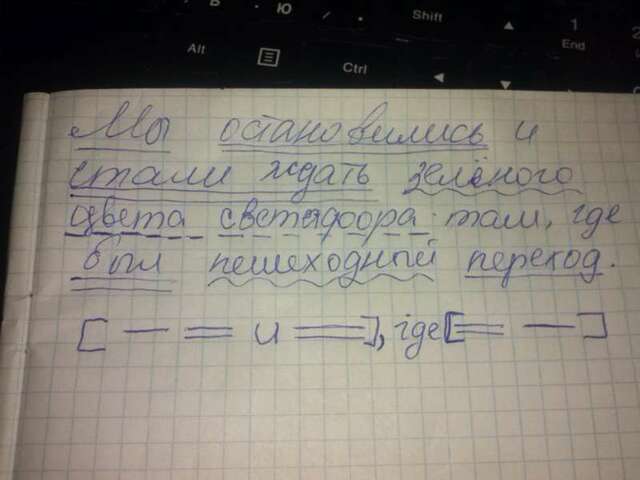 Б . Ю /
Shift
1
End
Alt
Ctrl
Мы остановились и
стали ждать зелёного
цвета светофора там, где
был пешеходный переход.
[ — = и = ], где [ = — ]